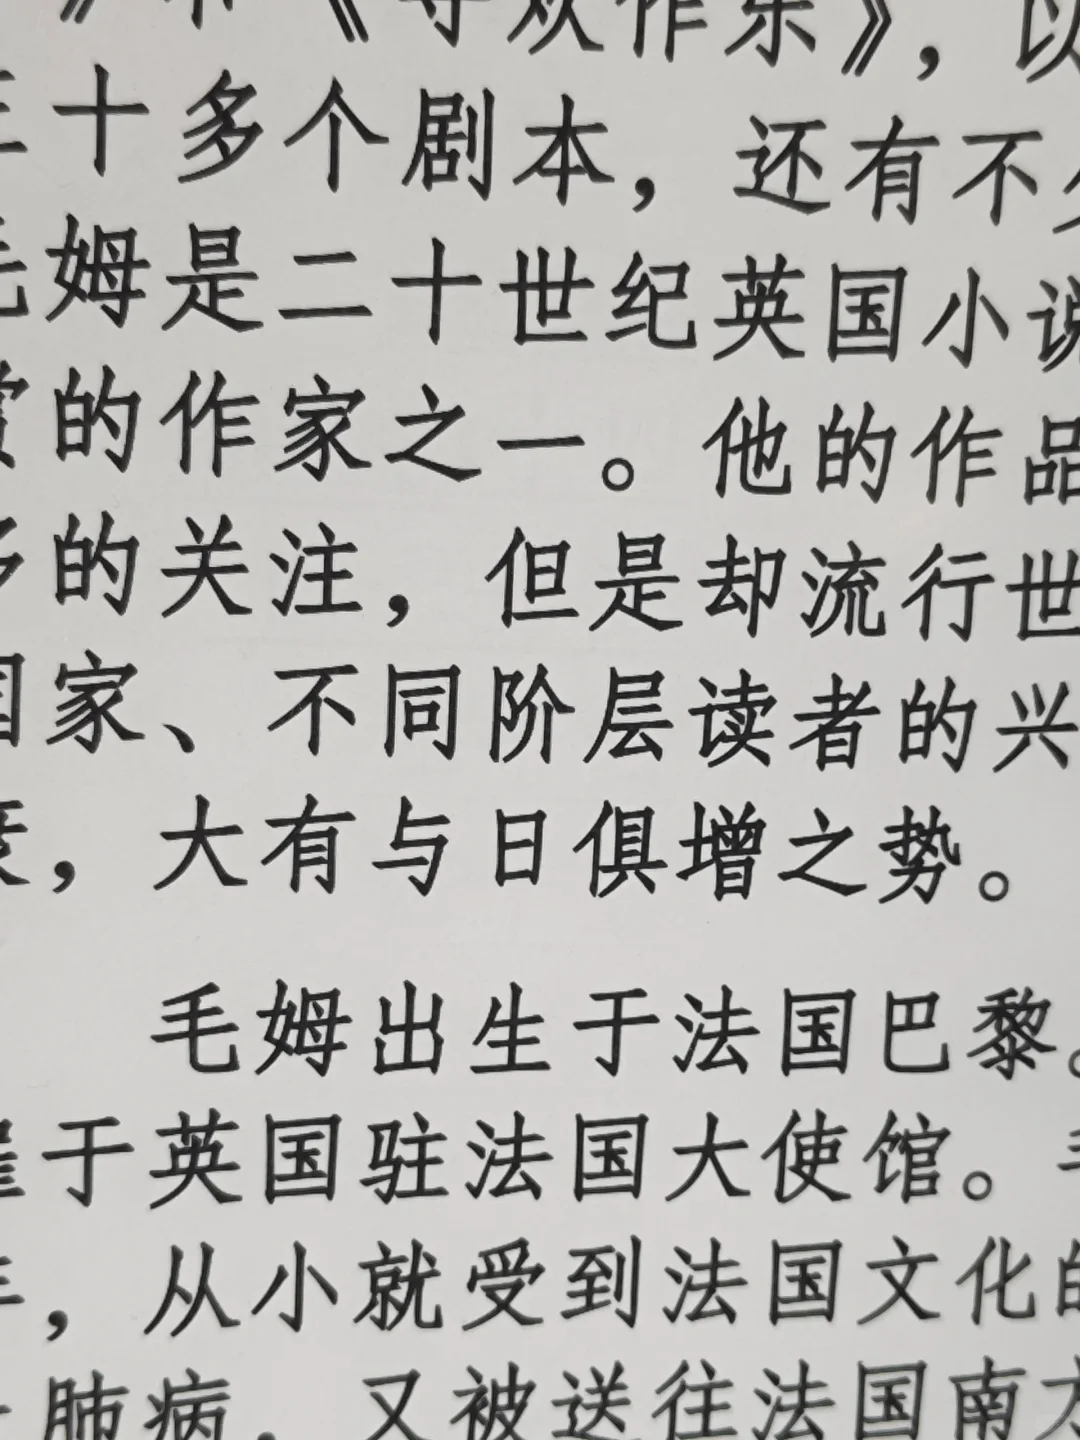 》和《寻欢作乐》，以
十多个剧本，还有不少
毛姆是二十世纪英国小说
的作家之一。他的作品
多的关注，但是却流行世
国家、不同阶层读者的兴
衰，大有与日俱增之势。
毛姆出生于法国巴黎。
于英国驻法国大使馆。
，从小就受到法国文化的
肺病，又被送往法国南方